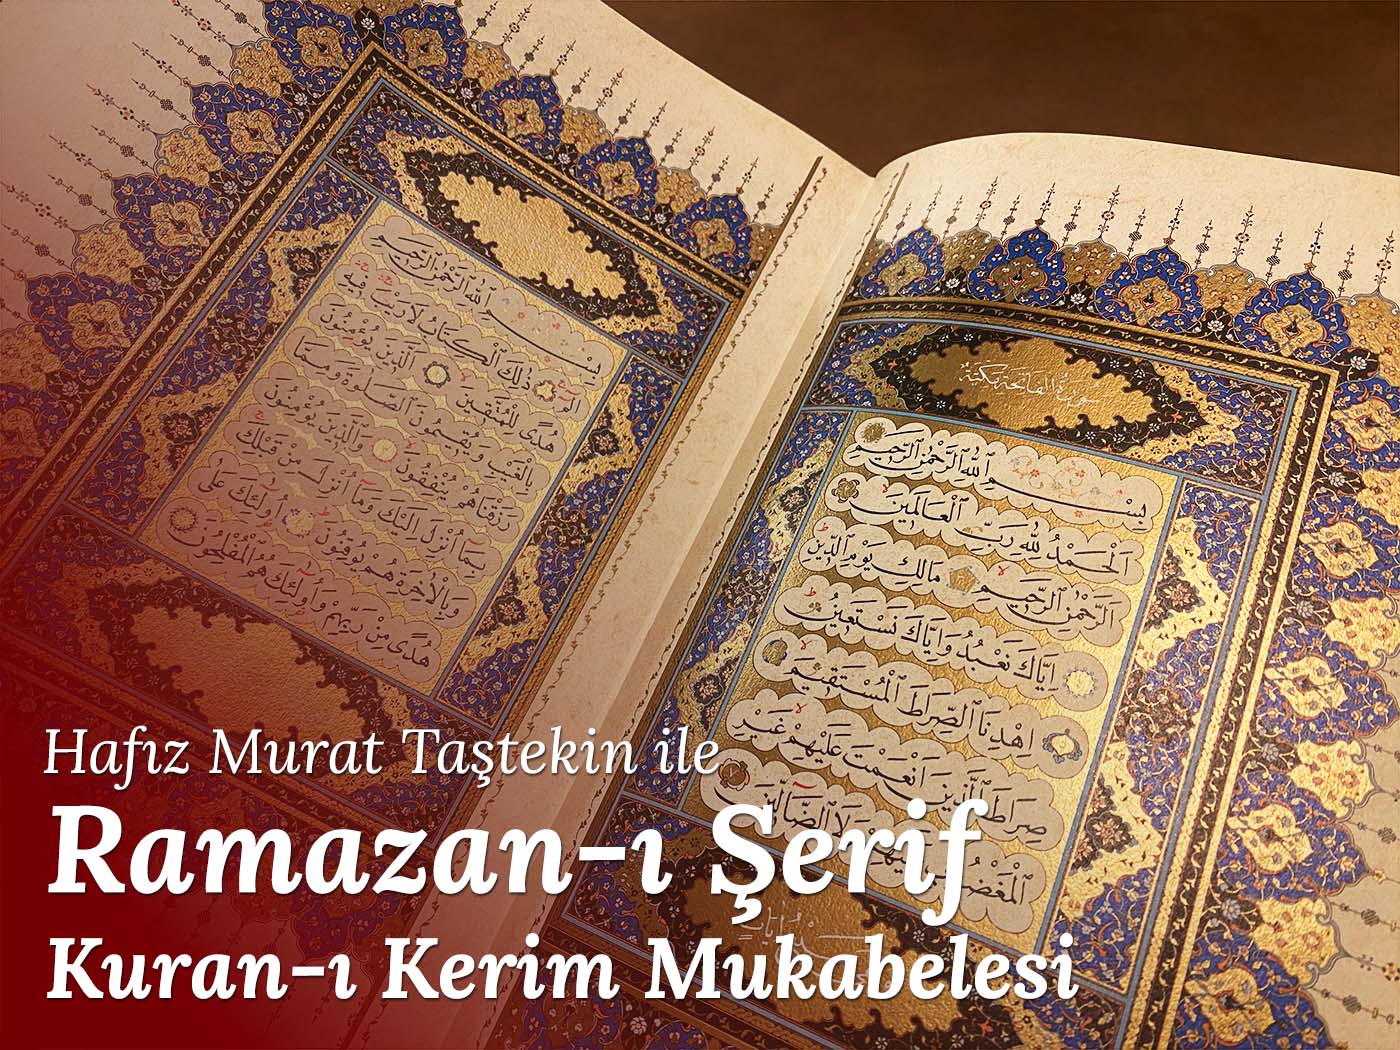 سورة الفاتحة مكية
بِسْمِ اللهِ الرَّحْمٰنِ الرَّحِيمِ
اَلْحَمْدُ لِلّٰهِ رَبِّ الْعَالَمِينَ
اَلرَّحْمٰنِ الرَّحِيمِ مَالِكِ يَوْمِ الدِّينِ
اِيَّاكَ نَعْبُدُ وَاِيَّاكَ نَسْتَعِينُ
اِهْدِنَا الصِّرَاطَ الْمُسْتَقِيمَ
صِرَاطَ الَّذِينَ اَنْعَمْتَ عَلَيْهِمْ غَيْرِ
الْمَغْضُوبِ عَلَيْهِمْ وَلَا الضَّالِّينَ
بِسْمِ اللهِ الرَّحْمٰنِ الرَّحِيمِ
الم ذٰلِكَ الْكِتَابُ لَا رَيْبَ فِيهِ
هُدًى لِلْمُتَّقِينَ اَلَّذِينَ يُؤْمِنُونَ
بِالْغَيْبِ وَيُقِيمُونَ الصَّلٰوةَ وَمِمَّا
رَزَقْنَاهُمْ يُنْفِقُونَ وَالَّذِينَ يُؤْمِنُونَ
بِمَا اُنْزِلَ اِلَيْكَ وَمَا اُنْزِلَ مِنْ قَبْلِكَ
وَبِالْاٰخِرَةِ هُمْ يُوقِنُونَ اُولٰئِكَ عَلٰى
هُدًى مِنْ رَبِّهِمْ وَاُولٰئِكَ هُمُ الْمُفْلِحُونَ
Hafız Murat Taştekin ile
Ramazan-ı Şerif
Kuran-ı Kerim Mukabelesi